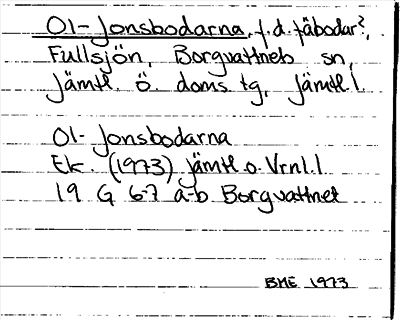 Ol-Jonsbodarna, f.d. fäbodar?,
Fullsjön, Borgvattnets sn,
Jämtl. ö. doms tg, Jämtl. l.
Ol-Jonsbodarna
Ek. (1973) Jämtl o. Vrnl. l
19 G 6-7 a-b Borgvattnet
BME 1973